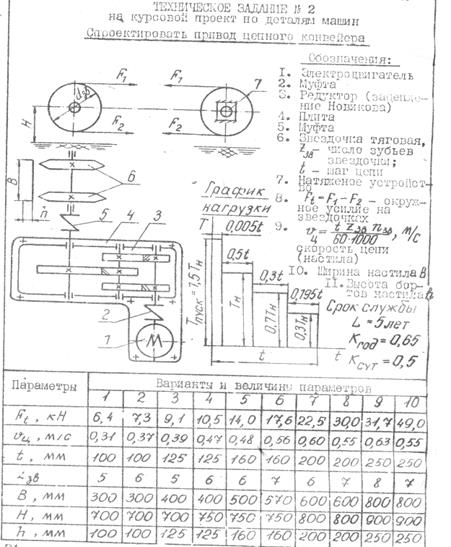 ТЕХНИЧЕСКОЕ ЗАДАНИЕ № 2
на курсовой проект по деталям машин
Спроектировать привод цепного конвейера
Обозначения:
1. Электродвигатель
2. Муфта
3. Редуктор (зацепление Новикова)
4. Плита
5. Муфта
6. Звездочка тяговая,
Zзв – число зубьев
звездочки;
t – шаг цепи
7. Натяжное устройство
8. Ft=F1-F2 – окружное усилие на
звездочках
9. v ц = t zзв nзв / 60·1000, м/с
скорость цепи
(настила)
10. Ширина настила В
11. Высота бортов настила h
Срок службы
L = 5 лет
Kгод = 0,65
Kсут = 0,5
F1
F1
7
F2
F2
H
B
h
6
5
4
3
2
1
М
График
нагрузки
T
0,005t
0,5t
0,3t
0,195t
Tпуск = 1,5Tн
Tн
0,7Tн
0,3Tн
t
t
Параметры
Варианты и величины параметров
1 2 3 4 5 6 7 8 9 10
Ft, кН 6,4 7,3 9,1 10,5 14,0 17,6 22,5 30,0 31,7 49,0
vц, м/с 0,31 0,37 0,39 0,47 0,48 0,56 0,60 0,55 0,63 0,55
t, мм 100 100 125 125 160 160 200 200 250 250
Zзв 5 6 5 6 6 7 6 7 8 7
B, мм 300 300 400 400 500 570 600 600 800 800
H, мм 700 700 700 750 750 750 800 800 900 900
h, мм 100 100 125 125 160 160 200 200 250 250